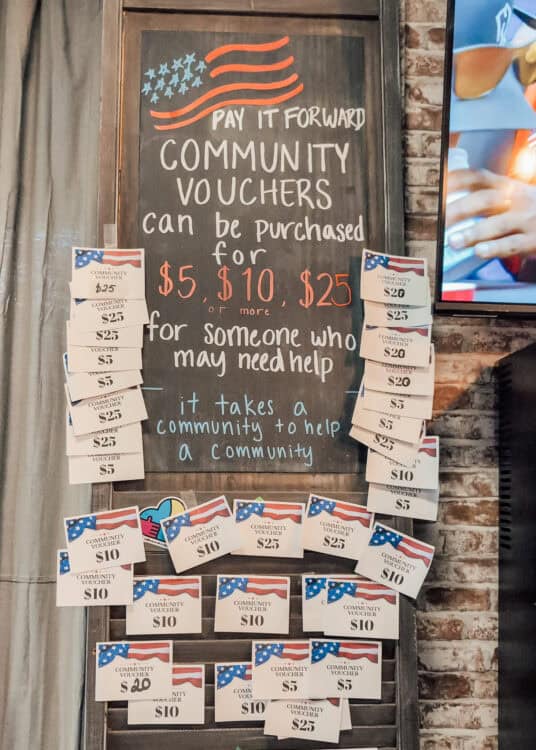 PAY IT FORWARD
COMMUNITY
VOUCHERS
can be purchased
for
$5, $10, $25
or more
for someone who
may need help
it takes a
community to help
a community
COMMUNITY
VOUCHER
$25
$25
VOUCHER
$25
VOUCHER
$5
$5
COMMUNITY
VOUCHER
$25
VOUCHER
$25
VOUCHER
$5
COMMUNITY
VOUCHER
$20
$20
COMMUNITY
VOUCHER
$20
VOUCHER
$20
$5
$5
$25
COMMUNITY
VOUCHER
$10
VOUCHER
$5
COMMUNITY
VOUCHER
$10
COMMUNITY
VOUCHER
$10
COMMUNITY
VOUCHER
$25
COMMUNITY
VOUCHER
$25
COMMUNITY
VOUCHER
$10
$10
COMMUNITY
VOUCHER
$10
COMMUNITY
VOUCHER
$10
COMMUNITY
VOUCHER
$10
COMMUNITY
VOUCHER
$20
COMMUNITY
VOUCHER
$10
COMMUNITY
VOUCHER
$10
COMMUNITY
VOUCHER
$5
COMMUNITY
VOUCHER
$5
VOUCHER
$25